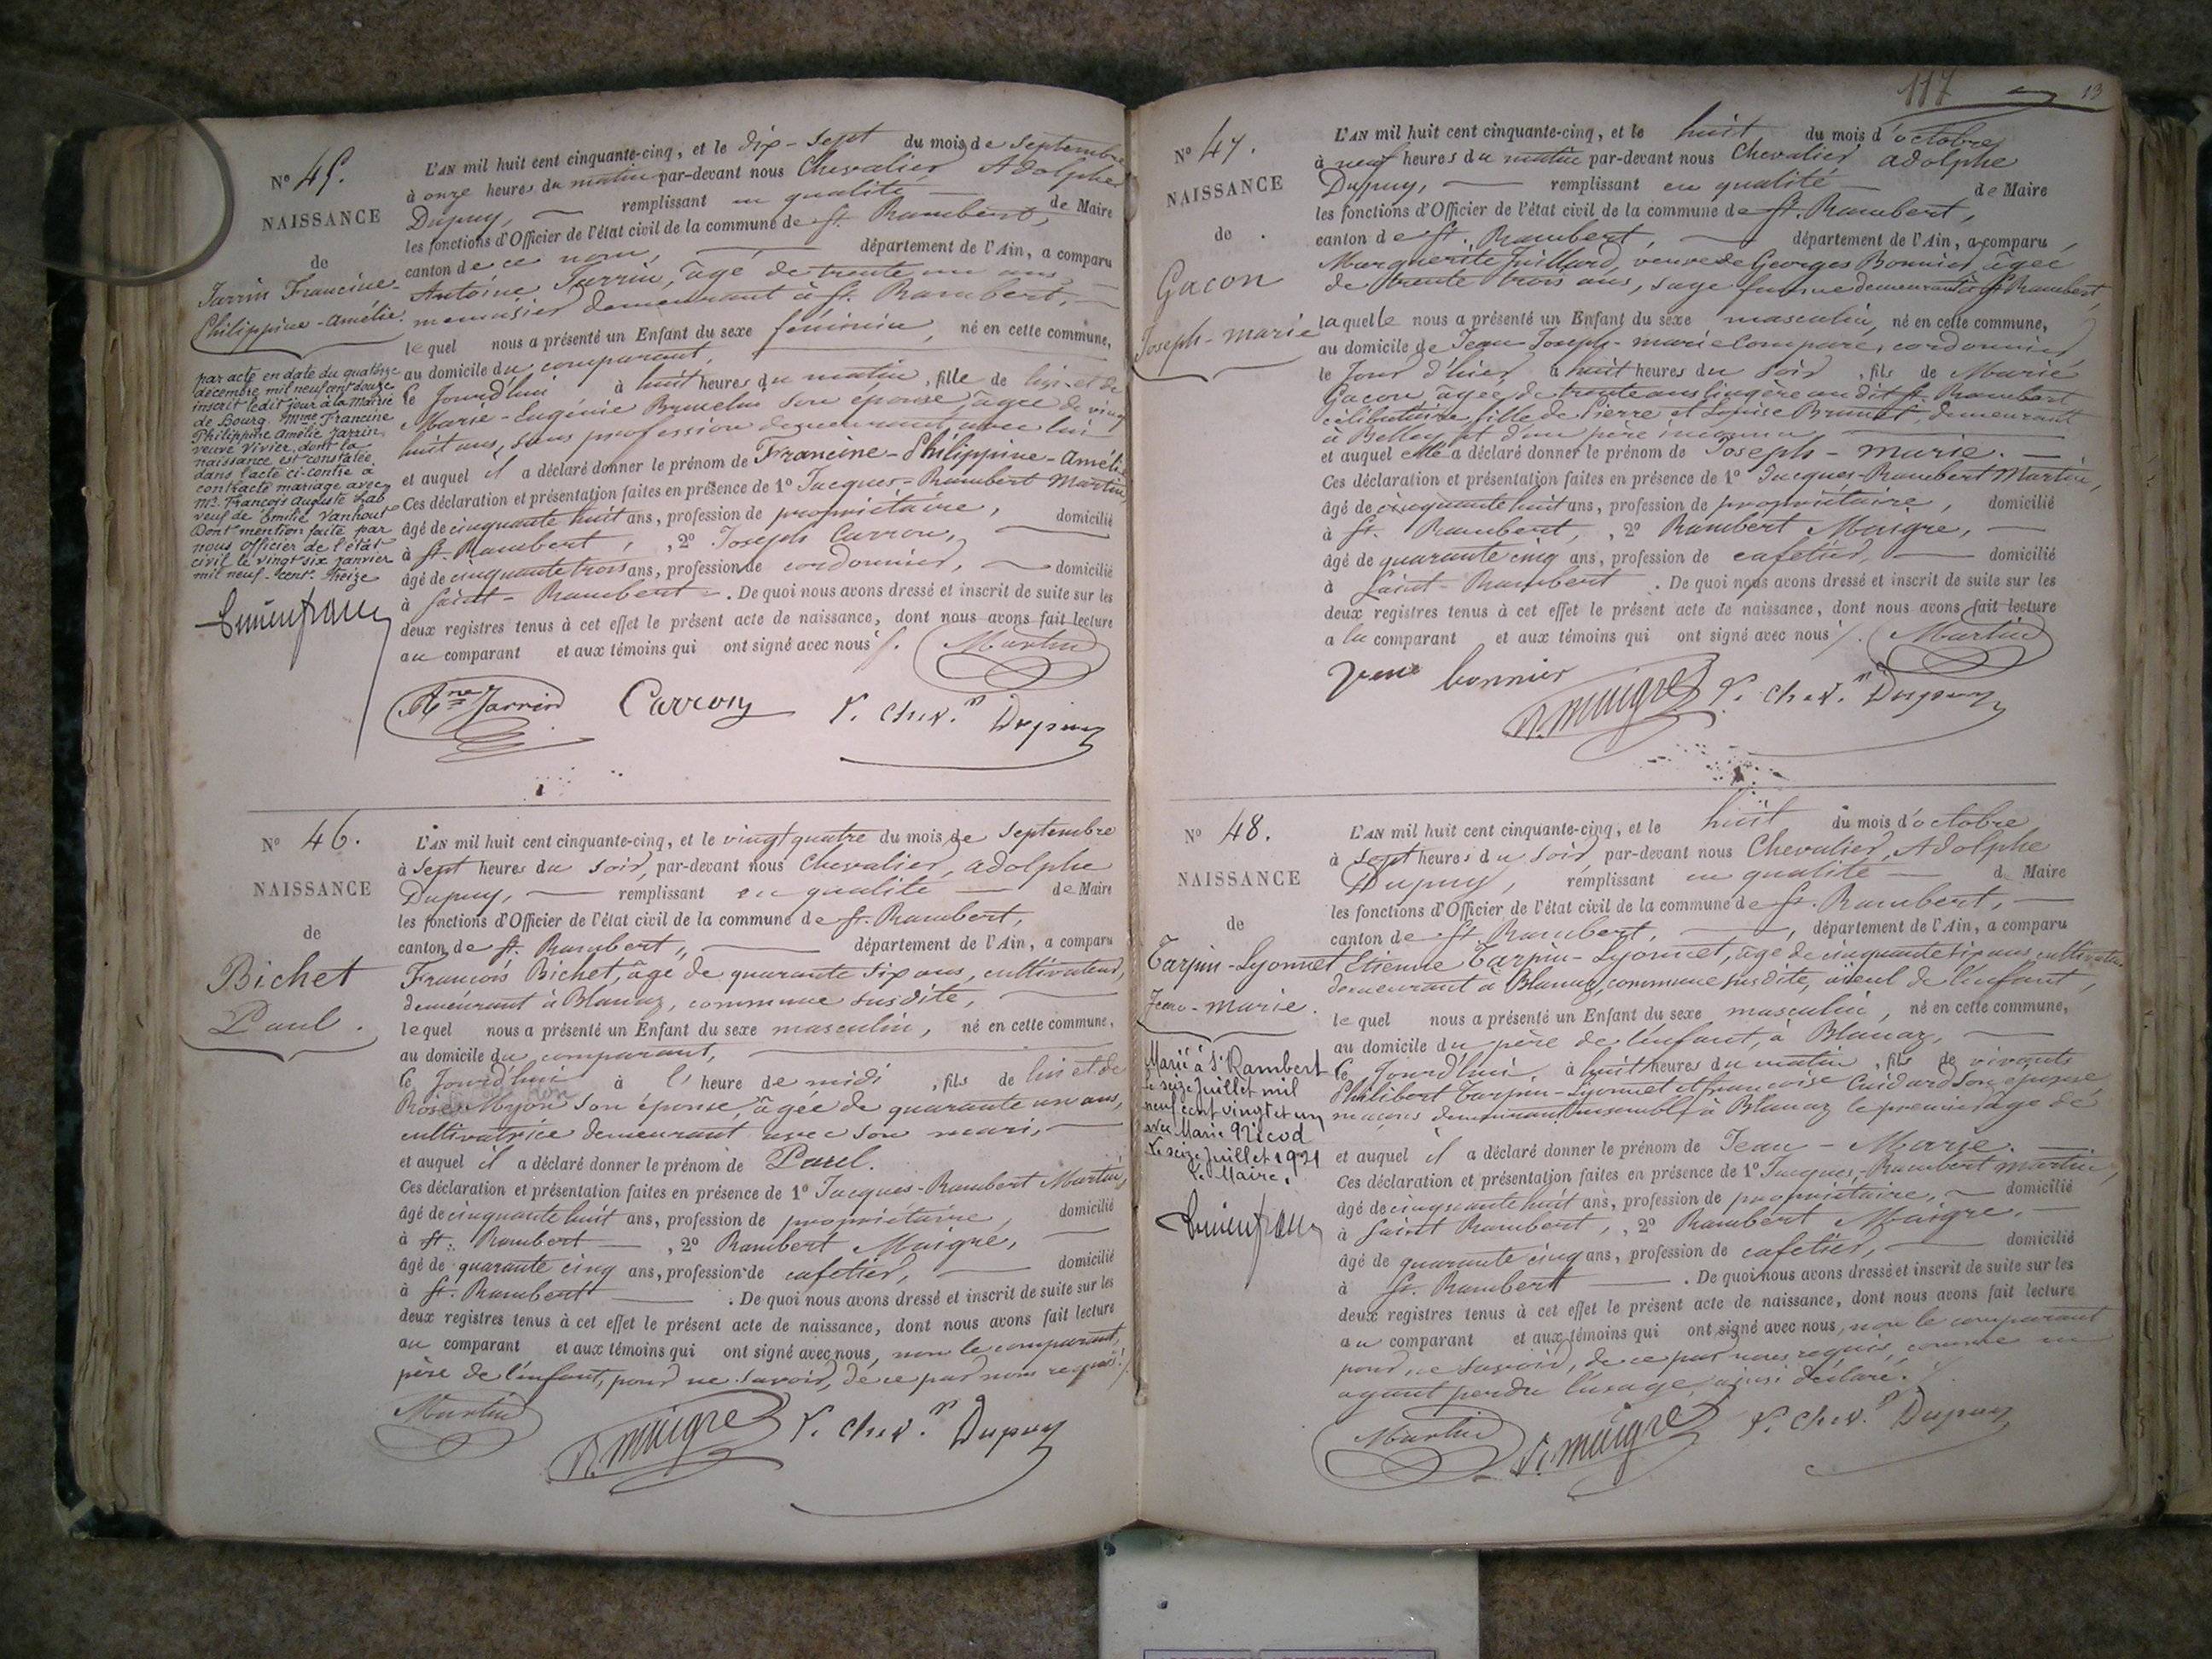 N° 45.
NAISSANCE
de
Jarrin Francine-
Philippine-Amélie.
par acte en date du quatorze
décembre mil neuf cent douze
inscrit ledit jour à la Mairie
de Bourg. Mme Francine
Philippine Amélie Jarrin,
veuve Vivier, dont la
naissance est constatée
dans l'acte ci-contre a
contracté mariage avec
Mr. François Auguste Lab
veuf de Emilie Vanhout
Dont mention faite par
nous officier de l'état
civil le vingt six janvier
mil neuf-cent-treize
L'AN mil huit cent cinquante-cinq, et le dix-sept du mois de Septembre
à onze heures du matin par-devant nous Chevalier Adolphe
Dupuy, remplissant en qualité de Maire
les fonctions d'Officier de l'état civil de la commune de St. Rambert,
canton de ce nom, département de l'Ain, a comparu
Antoine Jarrin, âgé de trente un ans
menuisier demeurant à St. Rambert,
lequel nous a présenté un Enfant du sexe féminin, né en cette commune,
au domicile du comparant,
ce jourd'hui à huit heures du matin, fille de lui et de
Marie-Eugénie son épouse, âgée de vingt
huit ans, sans profession demeurant avec lui
et auquel il a déclaré donner le prénom de Francine-Philippine-Amélie
Ces déclaration et présentation faites en présence de 1° Jacques-Rambert Martin,
âgé de cinquante huit ans, profession de propriétaire, domicilié
à St. Rambert, 2° Joseph Carron,
âgé de cinquante trois ans, profession de cordonnier, domicilié
à Saint-Rambert. De quoi nous avons dressé et inscrit de suite sur les
deux registres tenus à cet effet le présent acte de naissance, dont nous avons fait lecture
au comparant et aux témoins qui ont signé avec nous.
Martin
Ane Jarrin Carron V. Chev.n Dupuy
N° 46.
NAISSANCE
de
Bichet
Paul.
L'AN mil huit cent cinquante-cinq, et le vingt quatre du mois de Septembre
à Sept heures du soir, par-devant nous Chevalier, Adolphe
Dupuy, remplissant en qualité de Maire
les fonctions d'Officier de l'état civil de la commune de St. Rambert,
canton de St. Rambert, département de l'Ain, a comparu
François Bichet, âgé de quarante six ans, cultivateur,
demeurant à Blanaz, commune susdite,
lequel nous a présenté un Enfant du sexe masculin, né en cette commune,
au domicile du comparant,
ce jourd'hui à l'heure de midi, fils de lui et de
Rose Myon son épouse, âgée de quarante un ans,
cultivatrice demeurant avec son mari,
et auquel il a déclaré donner le prénom de Paul.
Ces déclaration et présentation faites en présence de 1° Jacques-Rambert Martin,
âgé de cinquante huit ans, profession de propriétaire, domicilié
à St. Rambert, 2° Rambert Maigre,
âgé de quarante cinq ans, profession de cafetier, domicilié
à St. Rambert. De quoi nous avons dressé et inscrit de suite sur les
deux registres tenus à cet effet le présent acte de naissance, dont nous avons fait lecture
au comparant et aux témoins qui ont signé avec nous, non le comparant,
père de l'enfant, pour ne savoir, de ce par nous requis.
Martin R. Maigre V. Chev.n Dupuy
117 13
N° 47.
NAISSANCE
de
Gacon
Joseph-Marie
L'AN mil huit cent cinquante-cinq, et le huit du mois d'octobre
à neuf heures du matin par-devant nous Chevalier Adolphe
Dupuy, remplissant en qualité de Maire
les fonctions d'Officier de l'état civil de la commune de St. Rambert,
canton de St. Rambert, département de l'Ain, a comparu
Marguerite Juillard, veuve de Georges Bonnier, âgée
de trente trois ans, sage femme demeurant à St Rambert,
laquelle nous a présenté un Enfant du sexe masculin, né en cette commune,
au domicile de Jean Joseph-Marie Compare, cordonnier,
le jour d'hier, à huit heures du soir, fils de Marie
Gacon, âgée de trente ans lingère au dit St. Rambert
célibataire, fille de Pierre et Louise Brunet, demeurant
à Belley et d'un père inconnu
et auquel elle a déclaré donner le prénom de Joseph-Marie.
Ces déclaration et présentation faites en présence de 1° Jacques-Rambert Martin,
âgé de cinquante huit ans, profession de propriétaire, domicilié
à St. Rambert, 2° Rambert Maigre,
âgé de quarante cinq ans, profession de cafetier, domicilié
à Saint-Rambert. De quoi nous avons dressé et inscrit de suite sur les
deux registres tenus à cet effet le présent acte de naissance, dont nous avons fait lecture
a la comparant et aux témoins qui ont signé avec nous. Martin
veuve bonnier R. Maigre V. Chev.n Dupuy
N° 48.
NAISSANCE
de
Tarpin-Lyonnet
Jean-Marie.
Marié à St Rambert
le seize Juillet mil
neuf cent vingt et un
avec Marie Nicod
Le seize Juillet 1921
Le Maire,
L'AN mil huit cent cinquante-cinq, et le huit du mois d'octobre
à sept heures du soir, par-devant nous Chevalier, Adolphe
Dupuy, remplissant en qualité de Maire
les fonctions d'Officier de l'état civil de la commune de St. Rambert,
canton de St. Rambert, département de l'Ain, a comparu
Etienne Tarpin-Lyonnet, âgé de cinquante six ans, cultivateur
demeurant à Blanaz, commune susdite, aïeul de l'enfant,
lequel nous a présenté un Enfant du sexe masculin, né en cette commune,
au domicile du père de l'enfant, à Blanaz,
ce jourd'hui, à huit heures du matin, fils de vivants
Philibert Tarpin-Lyonnet et françoise Cuidard son épouse
maçons demeurant ensemble à Blanaz le premier âgé de
et auquel il a déclaré donner le prénom de Jean-Marie.
Ces déclaration et présentation faites en présence de 1° Jacques-Rambert Martin,
âgé de cinquante huit ans, profession de propriétaire, domicilié
à Saint Rambert, 2° Rambert Maigre,
âgé de quarante cinq ans, profession de cafetier, domicilié
à St. Rambert. De quoi nous avons dressé et inscrit de suite sur les
deux registres tenus à cet effet le présent acte de naissance, dont nous avons fait lecture
au comparant et aux témoins qui ont signé avec nous, non le comparant
pour ne savoir, de ce par nous requis, comme en
ayant perdu l'usage, ainsi déclaré.
Martin R. Maigre V. Chev.n Dupuy